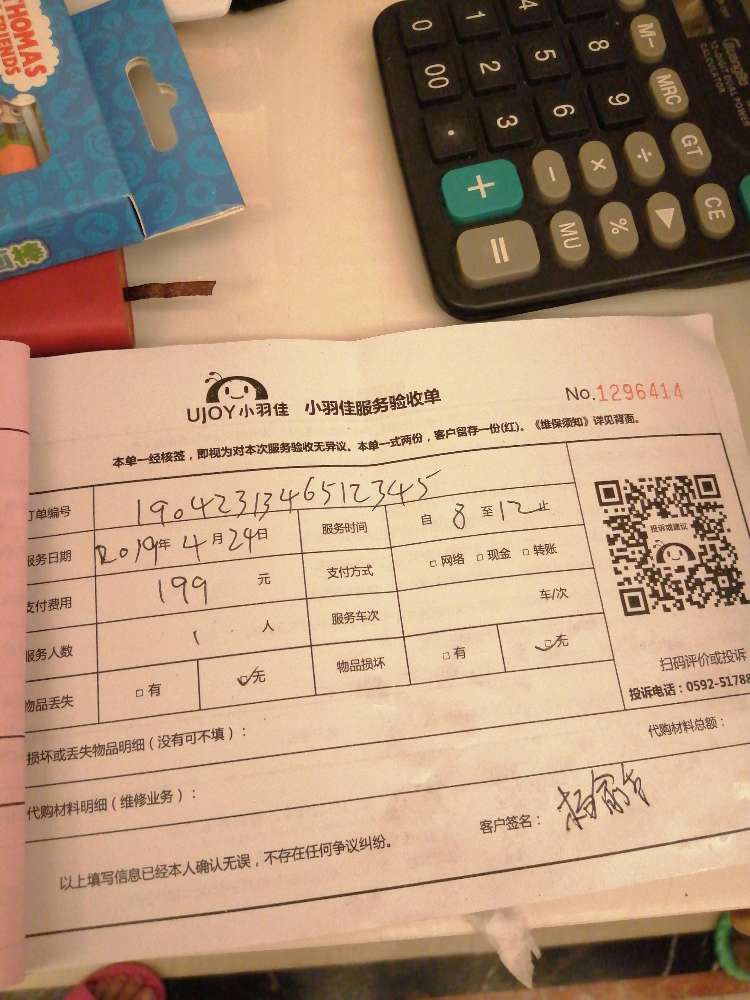 THOMAS
FRIENDS
0 1 4 M-
00 2 5 8 MRC
. 3 6 9 GT
+ - × ÷ CE
= MU % ▶
12-DIGIT DUAL POWER
CALCULATOR
UJOY小羽佳 小羽佳服务验收单 No.1296414
本单一经核签，即视为对本次服务验收无异议。本单一式两份，客户留存一份(红)。《维保须知》详见背面。
订单编号 1904231346512345
服务日期 2019年4月24日 服务时间 自 8 至 12 止
支付费用 199 元 支付方式 □网络 □现金 □转账
服务人数 1 人 服务车次 车/次
物品丢失 □有 ☑无 物品损坏 □有 ☑无
投诉或建议
扫码评价或投诉
投诉电话：0592-51788
损坏或丢失物品明细（没有可不填）：
代购材料明细（维修业务）： 代购材料总额：
客户签名：
以上填写信息已经本人确认无误，不存在任何争议纠纷。